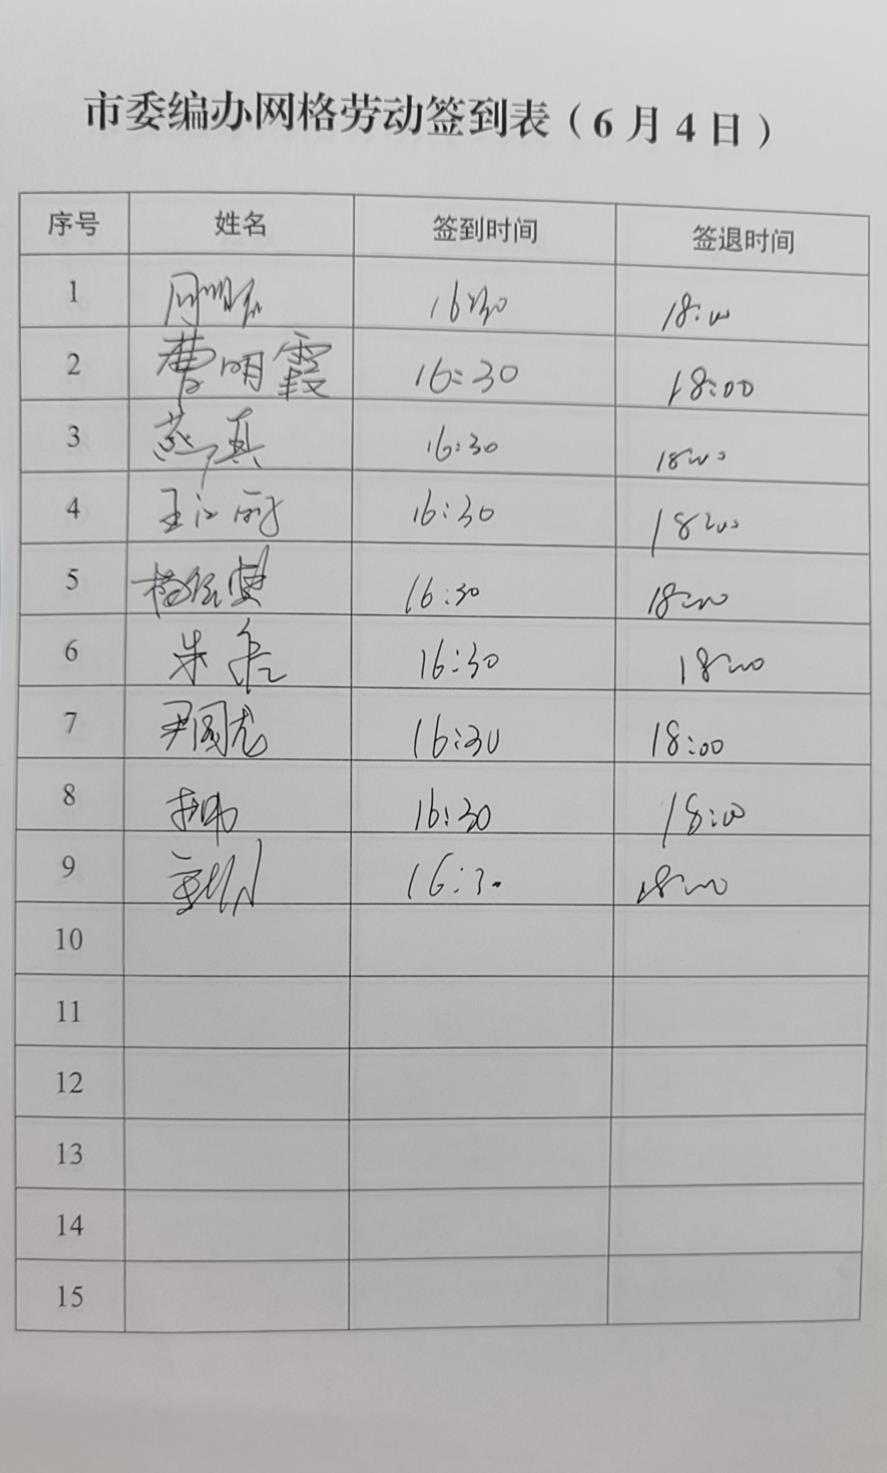 市委编办网格劳动签到表（6月4日）
序号 姓名 签到时间 签退时间
1 16:30 18:00
2 曹明霞 16:30 18:00
3 16:30 18:00
4 王江丽 16:30 18:00
5 16:30 18:00
6 朱 16:30 18:00
7 尹国龙 16:30 18:00
8 16:30 18:00
9 16:30 18:00
10
11
12
13
14
15